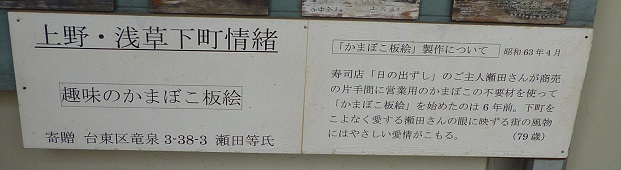 上野・浅草下町情緒
趣味のかまぼこ板絵
寄贈 台東区竜泉3-38-3 瀬田等氏
「かまぼこ板絵」製作について 昭和63年4月
寿司店「日の出ずし」のご主人瀬田さんが商売
の片手間に営業用のかまぼこの不要材を使って
「かまぼこ板絵」を始めたのは6年前。下町を
こよなく愛する瀬田さんの眼に映ずる街の風物
にはやさしい愛情がこもる。 (79歳)